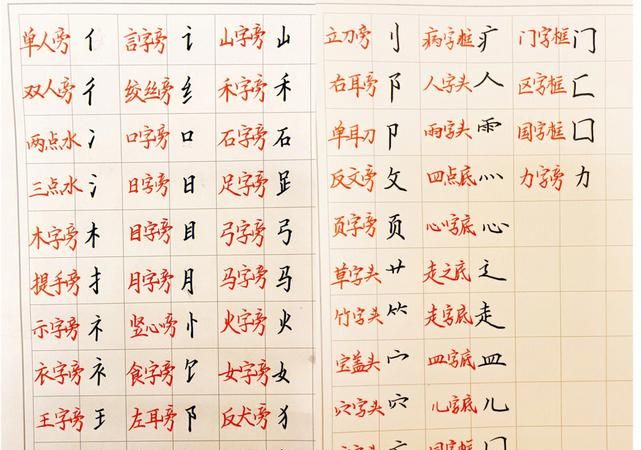 单人旁 亻 言字旁 讠 山字旁 山
双人旁 彳 绞丝旁 纟 禾字旁 禾
两点水 冫 口字旁 口 石字旁 石
三点水 氵 日字旁 日 足字旁 𧾷
木字旁 木 目字旁 目 弓字旁 弓
提手旁 扌 月字旁 月 马字旁 马
示字旁 礻 竖心旁 忄 火字旁 火
衣字旁 衤 食字旁 饣 女字旁 女
王字旁 王 左耳旁 阝 反犬旁 犭
立刀旁 刂 病字框 疒 门字框 门
右耳旁 阝 人字头 人 区字框 匚
单耳刀 卩 雨字头 ⻗ 国字框 囗
反文旁 攵 四点底 灬 力字旁 力
页字旁 页 心字底 心
草字头 艹 走之底 辶
竹字头 ⺮ 走字底 走
宝盖头 宀 皿字底 皿
穴字头 穴 儿字底 儿